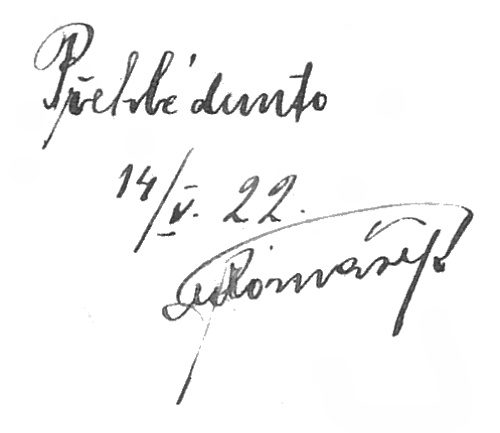 Přehlédnuto
14/V. 22.